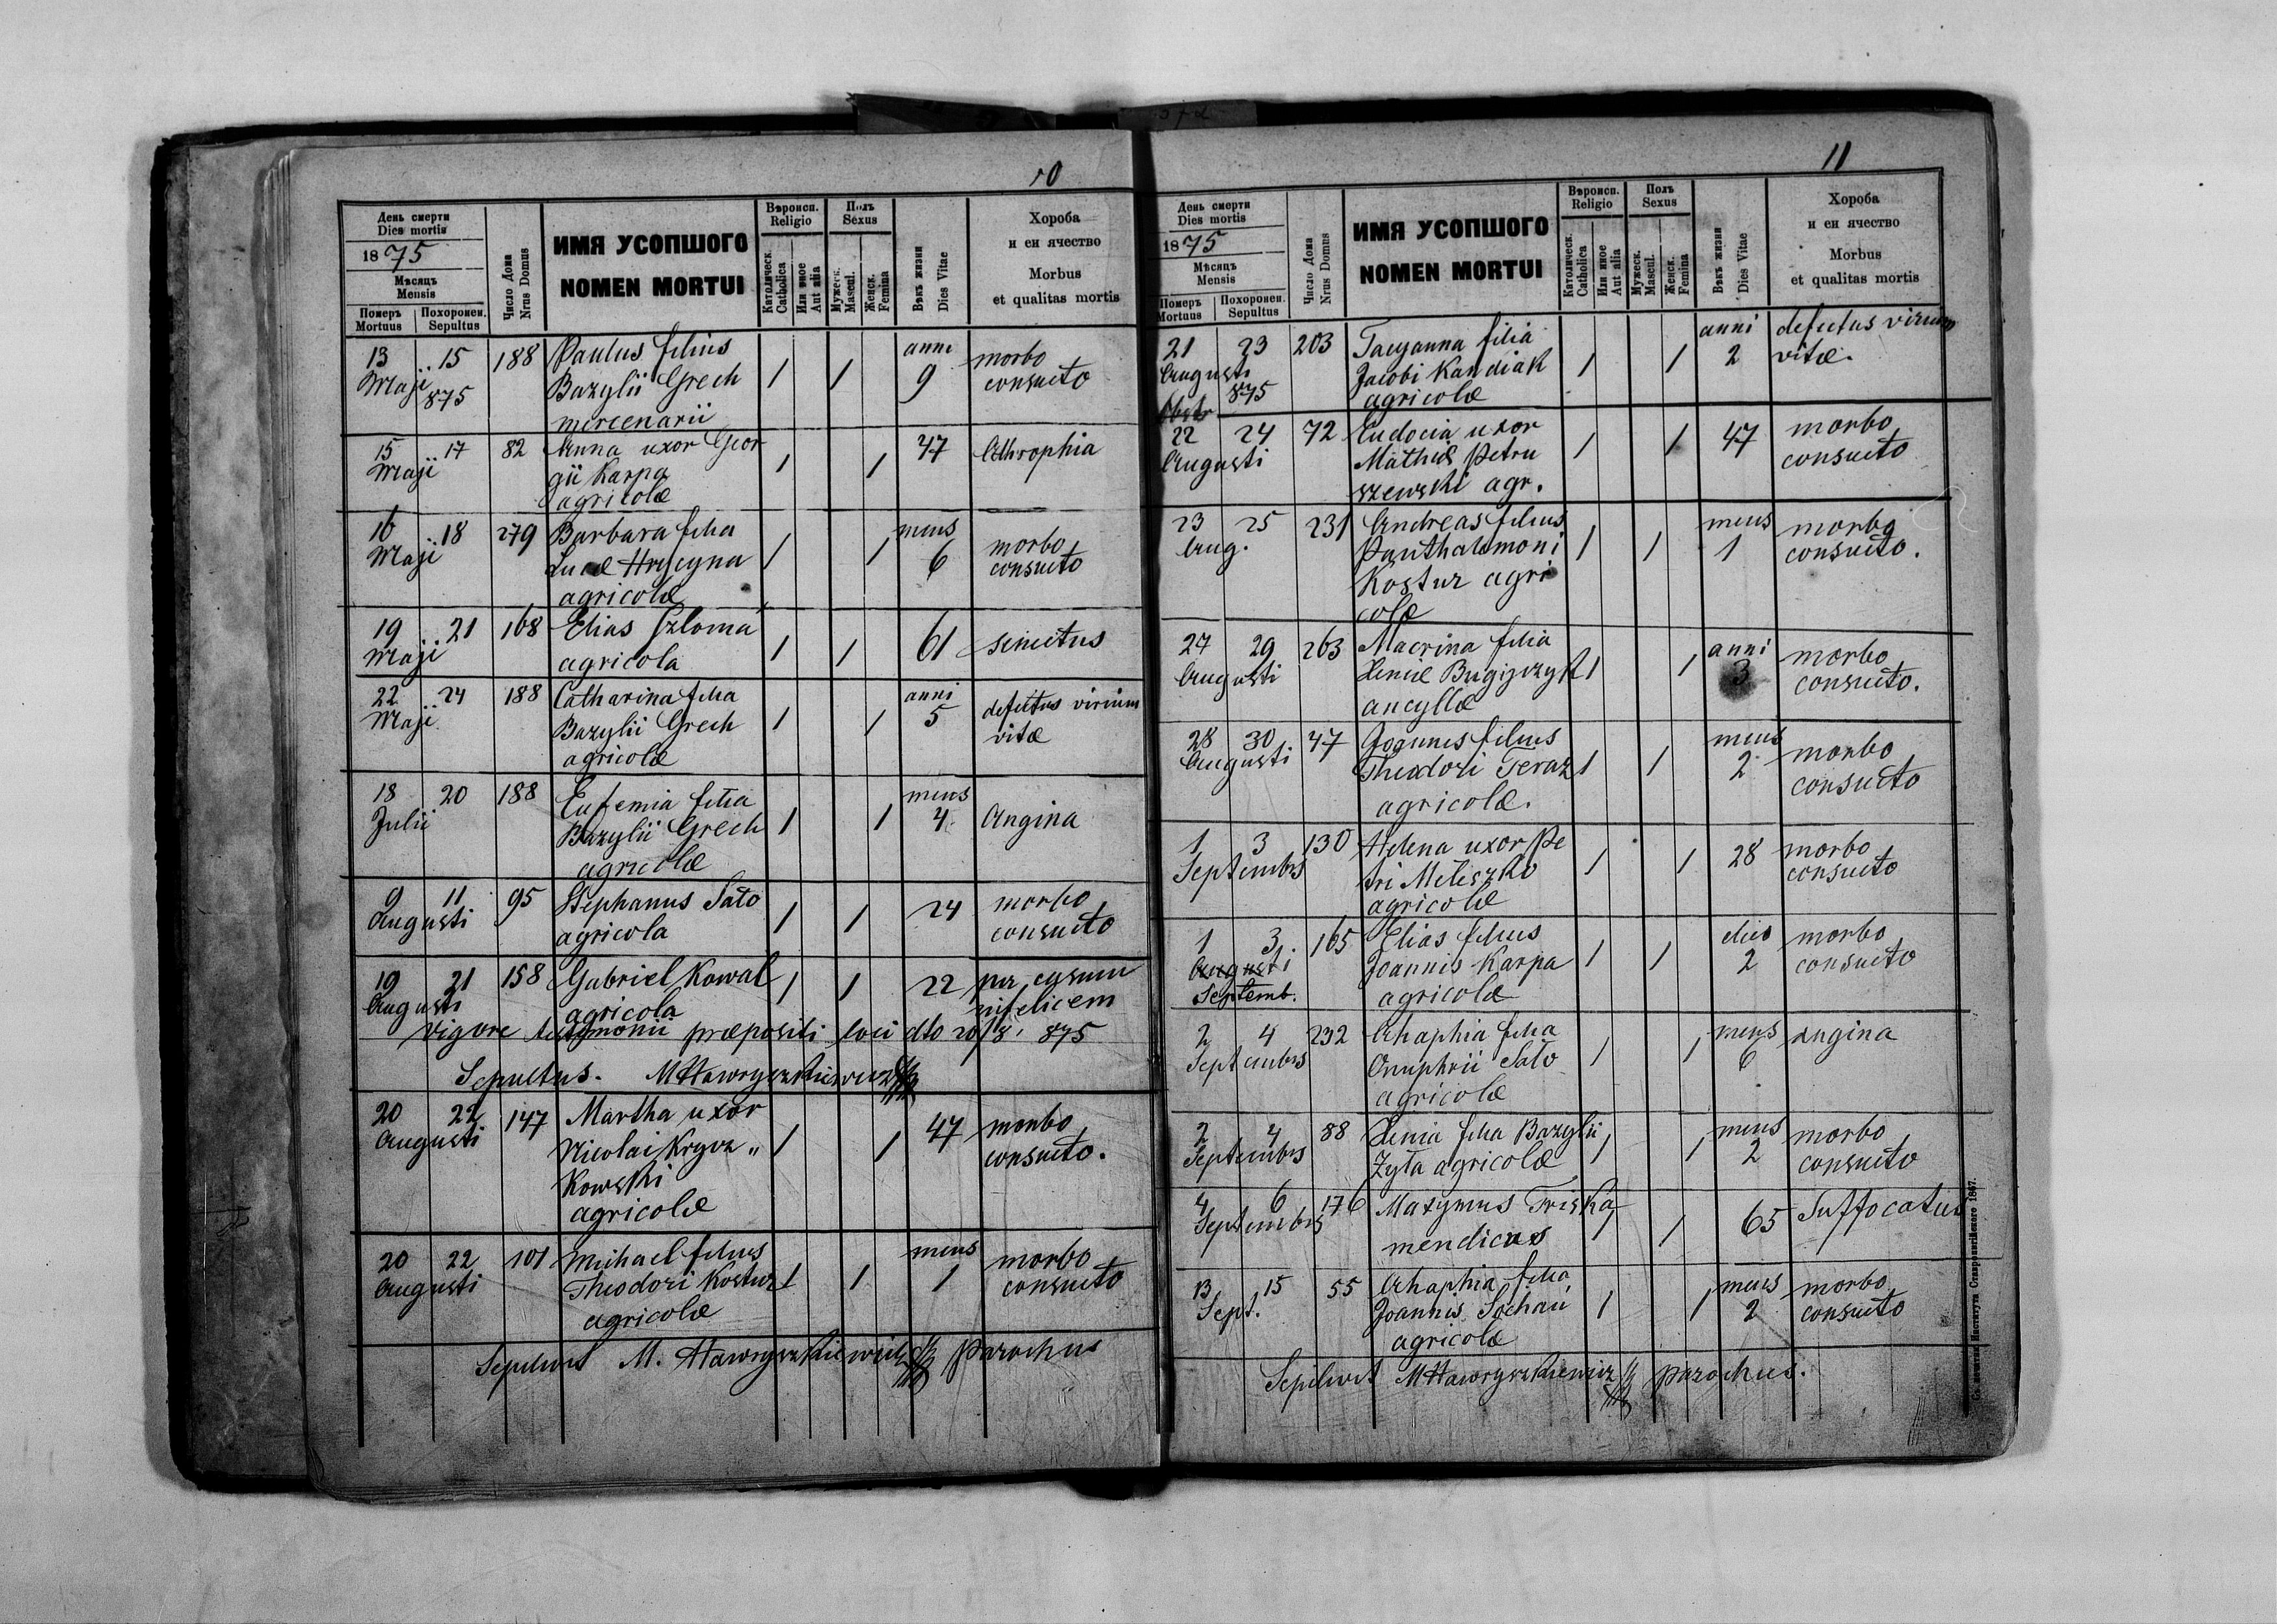 10
День смерти
Dies mortis
1875
Мѣсяцъ
Mensis
Померъ Похоронен.
Mortuus Sepultus
Число Дома
Nrus Domus
ИМЯ УСОПШОГО
NOMEN MORTUI
Вѣроисп.
Religio
Католическ.
Catholica
Или иное
Aut alia
Полъ
Sexus
Мужеск.
Mascul.
Женск.
Femina
Вѣкъ жизни
Dies Vitae
Хороба
и еи ячество
Morbus
et qualitas mortis
13 15 188 Paulus filius 1 1 anni 9 morbo
Maji 875 Bazylii Grech consueto
mercenarii
15 17 82 Anna uxor Geor 1 1 47 Athrophia
Maji gii Karpa
agricolæ
16 18 279 Barbara filia 1 1 mens 6 morbo
Maji Lucæ Hrycyna consueto
agricolæ
19 21 168 Elias Szloma 1 1 61 senectus
Maji agricola
22 24 188 Catharina filia 1 1 anni 5 defectus virium
Maji Bazylii Grech vitæ
agricolæ
18 20 188 Eufemia filia 1 1 mens 4 Angina
Julii Bazylii Grech
agricolæ
9 11 95 Stephanus Sato 1 1 24 morbo
Augusti agricola consueto
19 21 158 Gabriel Kowal 1 1 22 per casum
Augusti agricola infelicem
Vigore testimonii præpositi loci dto 20/8 875
Sepultus. MHawryszkiewicz
20 22 147 Martha uxor 1 1 47 morbo
Augusti Nicolai Krycz„ consueto.
kowski
agricolæ
20 22 101 Michael filius 1 1 mens 1 morbo
Augusti Theodori Kostur consueto
agricolæ
Sepelivit M. Hawryszkiewicz parochus
11
День смерти
Dies mortis
1875
Мѣсяцъ
Mensis
Померъ Похоронен.
Mortuus Sepultus
Число Дома
Nrus Domus
ИМЯ УСОПШОГО
NOMEN MORTUI
Вѣроисп.
Religio
Католическ.
Catholica
Или иное
Aut alia
Полъ
Sexus
Мужеск.
Mascul.
Женск.
Femina
Вѣкъ жизни
Dies Vitae
Хороба
и еи ячество
Morbus
et qualitas mortis
21 23 203 Tacyanna filia 1 1 anni 2 defectus virium
Augusti 875 Jacobi Kandiak vitæ.
agricolæ
22 24 72 Eudocia uxor 1 1 47 morbo
Augusti Mathiæ Petru consueto
szewski agr.
23 25 231 Andreas filius 1 1 mens 1 morbo
Aug. Panthalemoni consueto.
Kostur agri
colæ
27 29 263 Macrina filia 1 1 anni 3 morbo
Augusti Xeniæ Bugijczyk consueto.
ancyllæ
28 30 47 Joannes filius 1 1 mens 2 morbo
Augusti Theodori Feraz consueto
agricolæ.
1 3 130 Helena uxor Pe 1 1 28 morbo
Septembris tri Meleszko consueto
agricolæ
1 3 165 Elias filius 1 1 dies 2 morbo
Augusti Joannis Karpa consueto
Septemb. agricolæ
2 4 232 Ahaphia filia 1 1 mens 6 angina
Septembris Onuphrii Sato
agricolæ
2 4 88 Xenia filia Bazylii 1 1 mens 2 morbo
Septembris Zyła agricolæ consueto
4 6 176 Maxymus Friska 1 1 65 Suffocatus
Septembris mendicus
13 15 55 Ahaphia filia 1 1 mens 2 morbo
Sept. Joannis Sochań consueto
agricolæ
Sepelivit MHawryszkiewicz parochus.